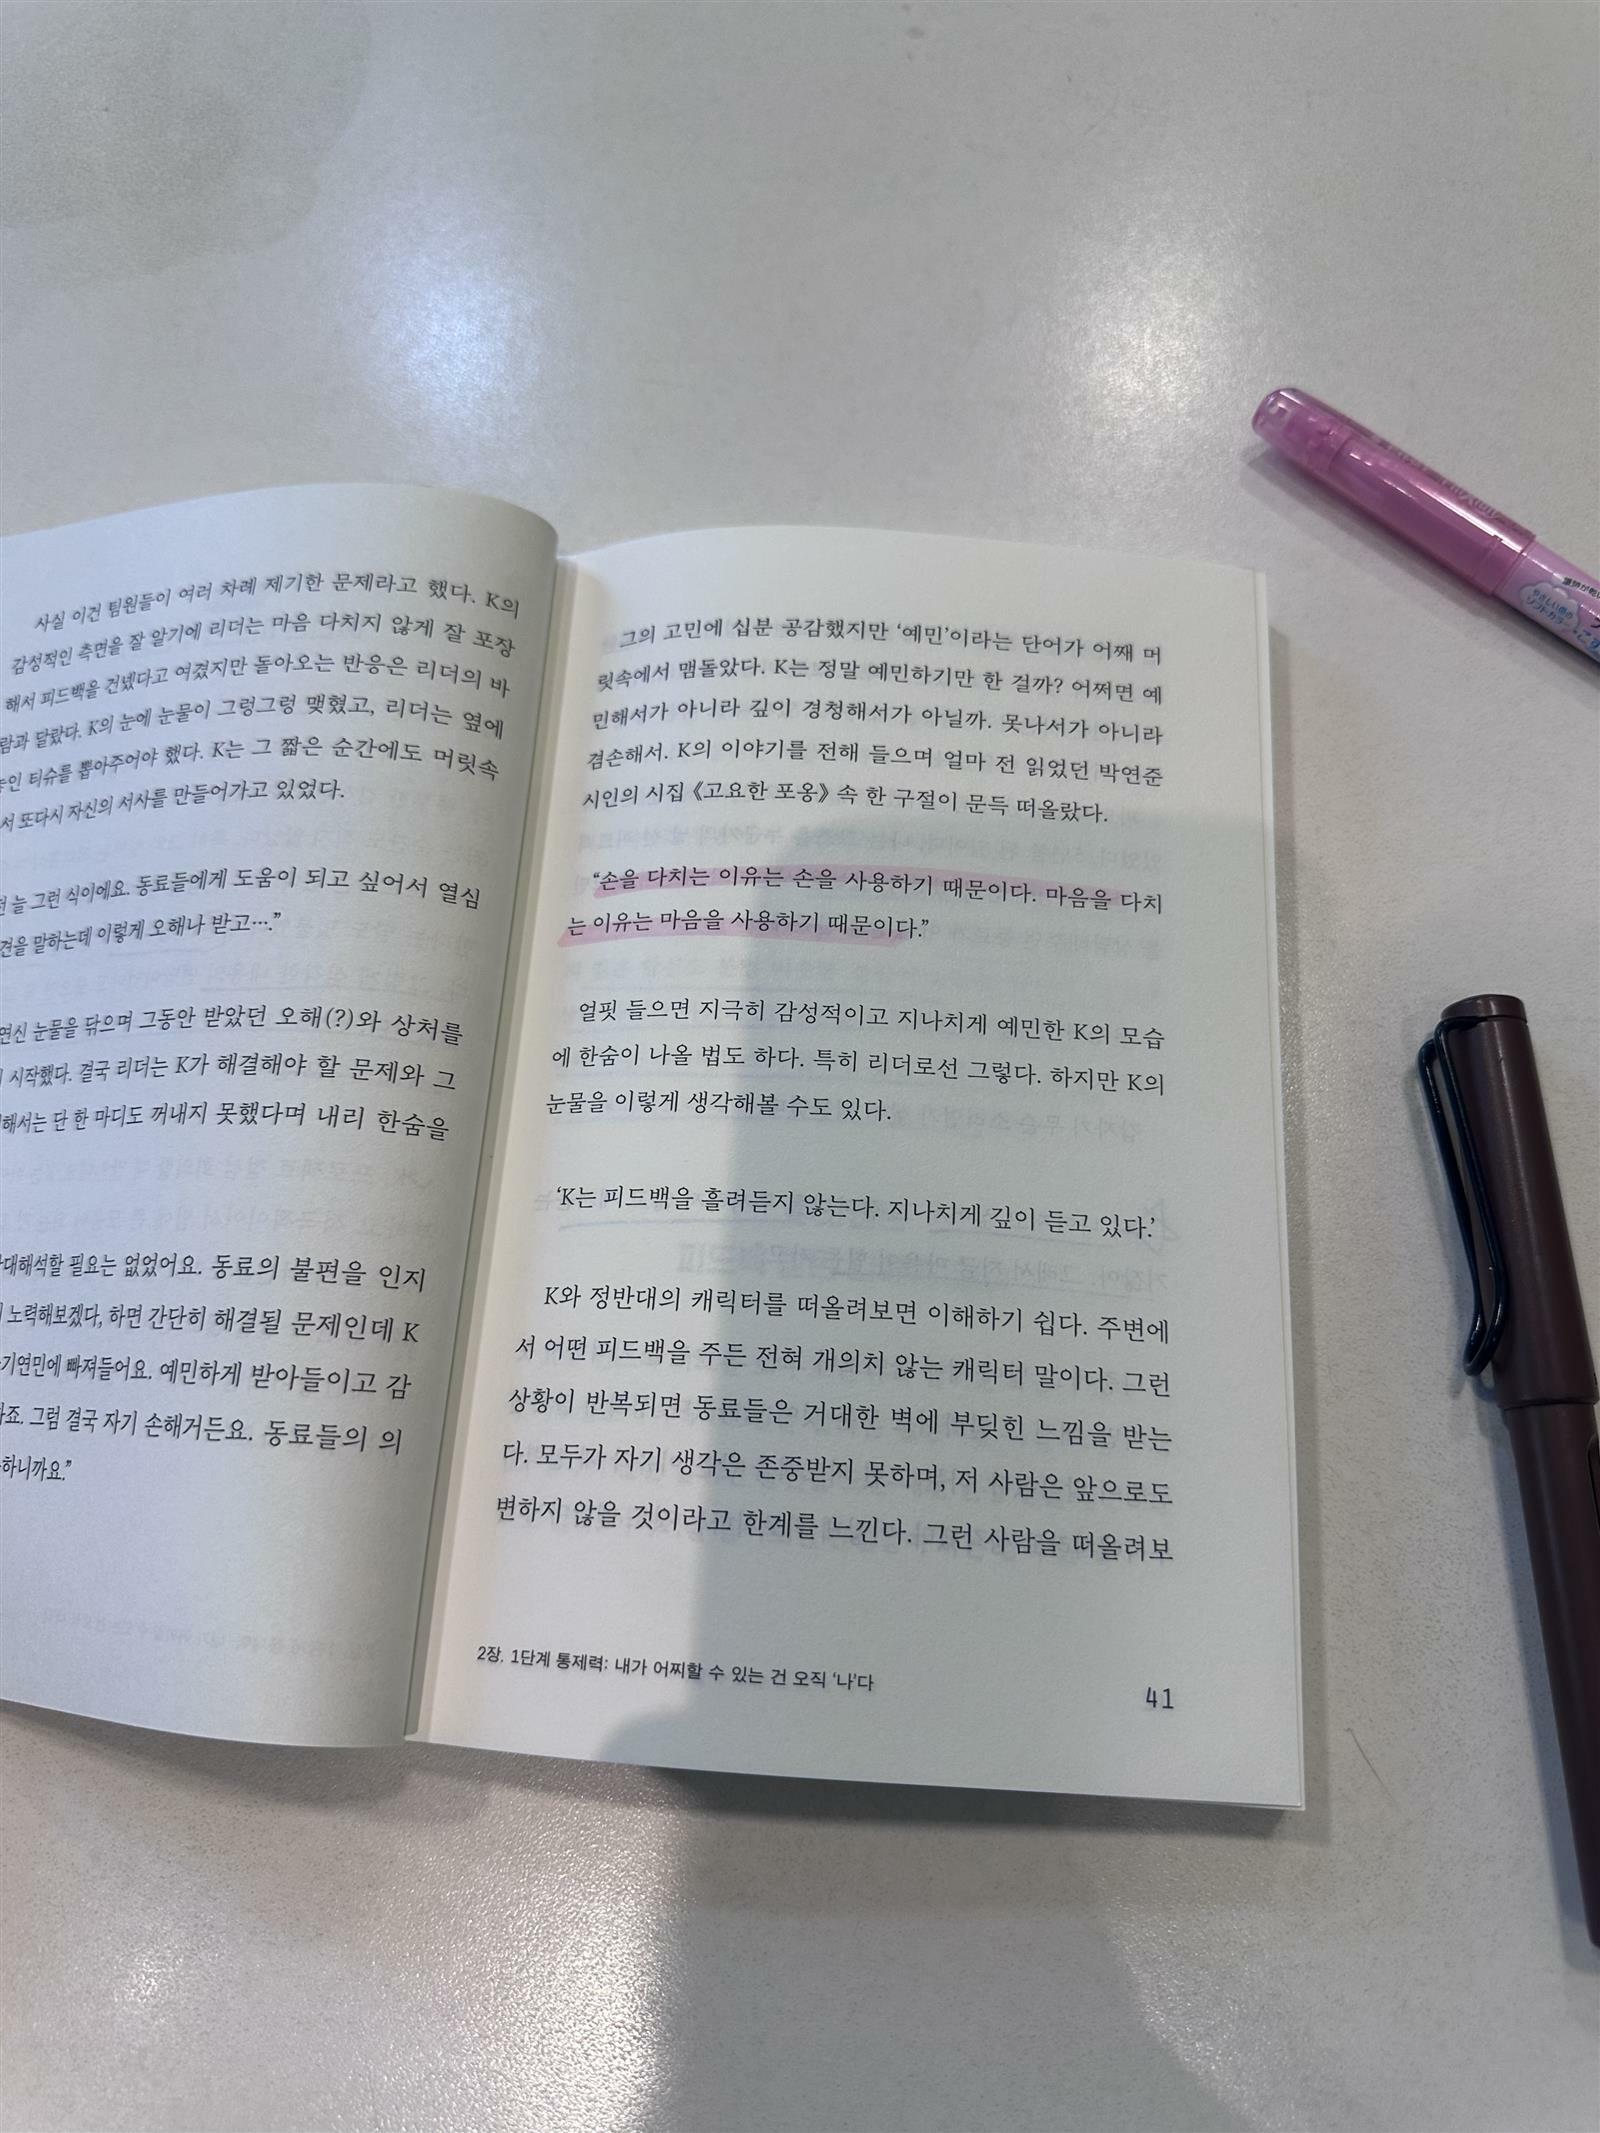 사실 이건 팀원들이 여러 차례 제기한 문제라고 했다. K의
감성적인 측면을 잘 알기에 리더는 마음 다치지 않게 잘 포장
해서 피드백을 건넸다고 여겼지만 돌아오는 반응은 리더의 바
람과 달랐다. K의 눈에 눈물이 그렁그렁 맺혔고, 리더는 옆에
놓인 티슈를 뽑아주어야 했다. K는 그 짧은 순간에도 머릿속
서 또다시 자신의 서사를 만들어가고 있었다.
늘 그런 식이에요. 동료들에게 도움이 되고 싶어서 열심
견을 말하는데 이렇게 오해나 받고…”
연신 눈물을 닦으며 그동안 받았던 오해(?)와 상처를
시작했다. 결국 리더는 K가 해결해야 할 문제와 그
해서는 단 한 마디도 꺼내지 못했다며 내리 한숨을
대해석할 필요는 없었어요. 동료의 불편을 인지
노력해보겠다, 하면 간단히 해결될 문제인데 K
기연민에 빠져들어요. 예민하게 받아들이고 감
죠. 그럼 결국 자기 손해거든요. 동료들의 의
하니까요.”
그의 고민에 십분 공감했지만 ‘예민’이라는 단어가 어째 머
릿속에서 맴돌았다. K는 정말 예민하기만 한 걸까? 어쩌면 예
민해서가 아니라 깊이 경청해서가 아닐까. 못나서가 아니라
겸손해서. K의 이야기를 전해 들으며 얼마 전 읽었던 박연준
시인의 시집 《고요한 포옹》 속 한 구절이 문득 떠올랐다.
“손을 다치는 이유는 손을 사용하기 때문이다. 마음을 다치
는 이유는 마음을 사용하기 때문이다.”
얼핏 들으면 지극히 감성적이고 지나치게 예민한 K의 모습
에 한숨이 나올 법도 하다. 특히 리더로선 그렇다. 하지만 K의
눈물을 이렇게 생각해볼 수도 있다.
‘K는 피드백을 흘려듣지 않는다. 지나치게 깊이 듣고 있다.’
K와 정반대의 캐릭터를 떠올려보면 이해하기 쉽다. 주변에
서 어떤 피드백을 주든 전혀 개의치 않는 캐릭터 말이다. 그런
상황이 반복되면 동료들은 거대한 벽에 부딪힌 느낌을 받는
다. 모두가 자기 생각은 존중받지 못하며, 저 사람은 앞으로도
변하지 않을 것이라고 한계를 느낀다. 그런 사람을 떠올려보
2장. 1단계 통제력: 내가 어찌할 수 있는 건 오직 ‘나’다
41
ソフトカラー